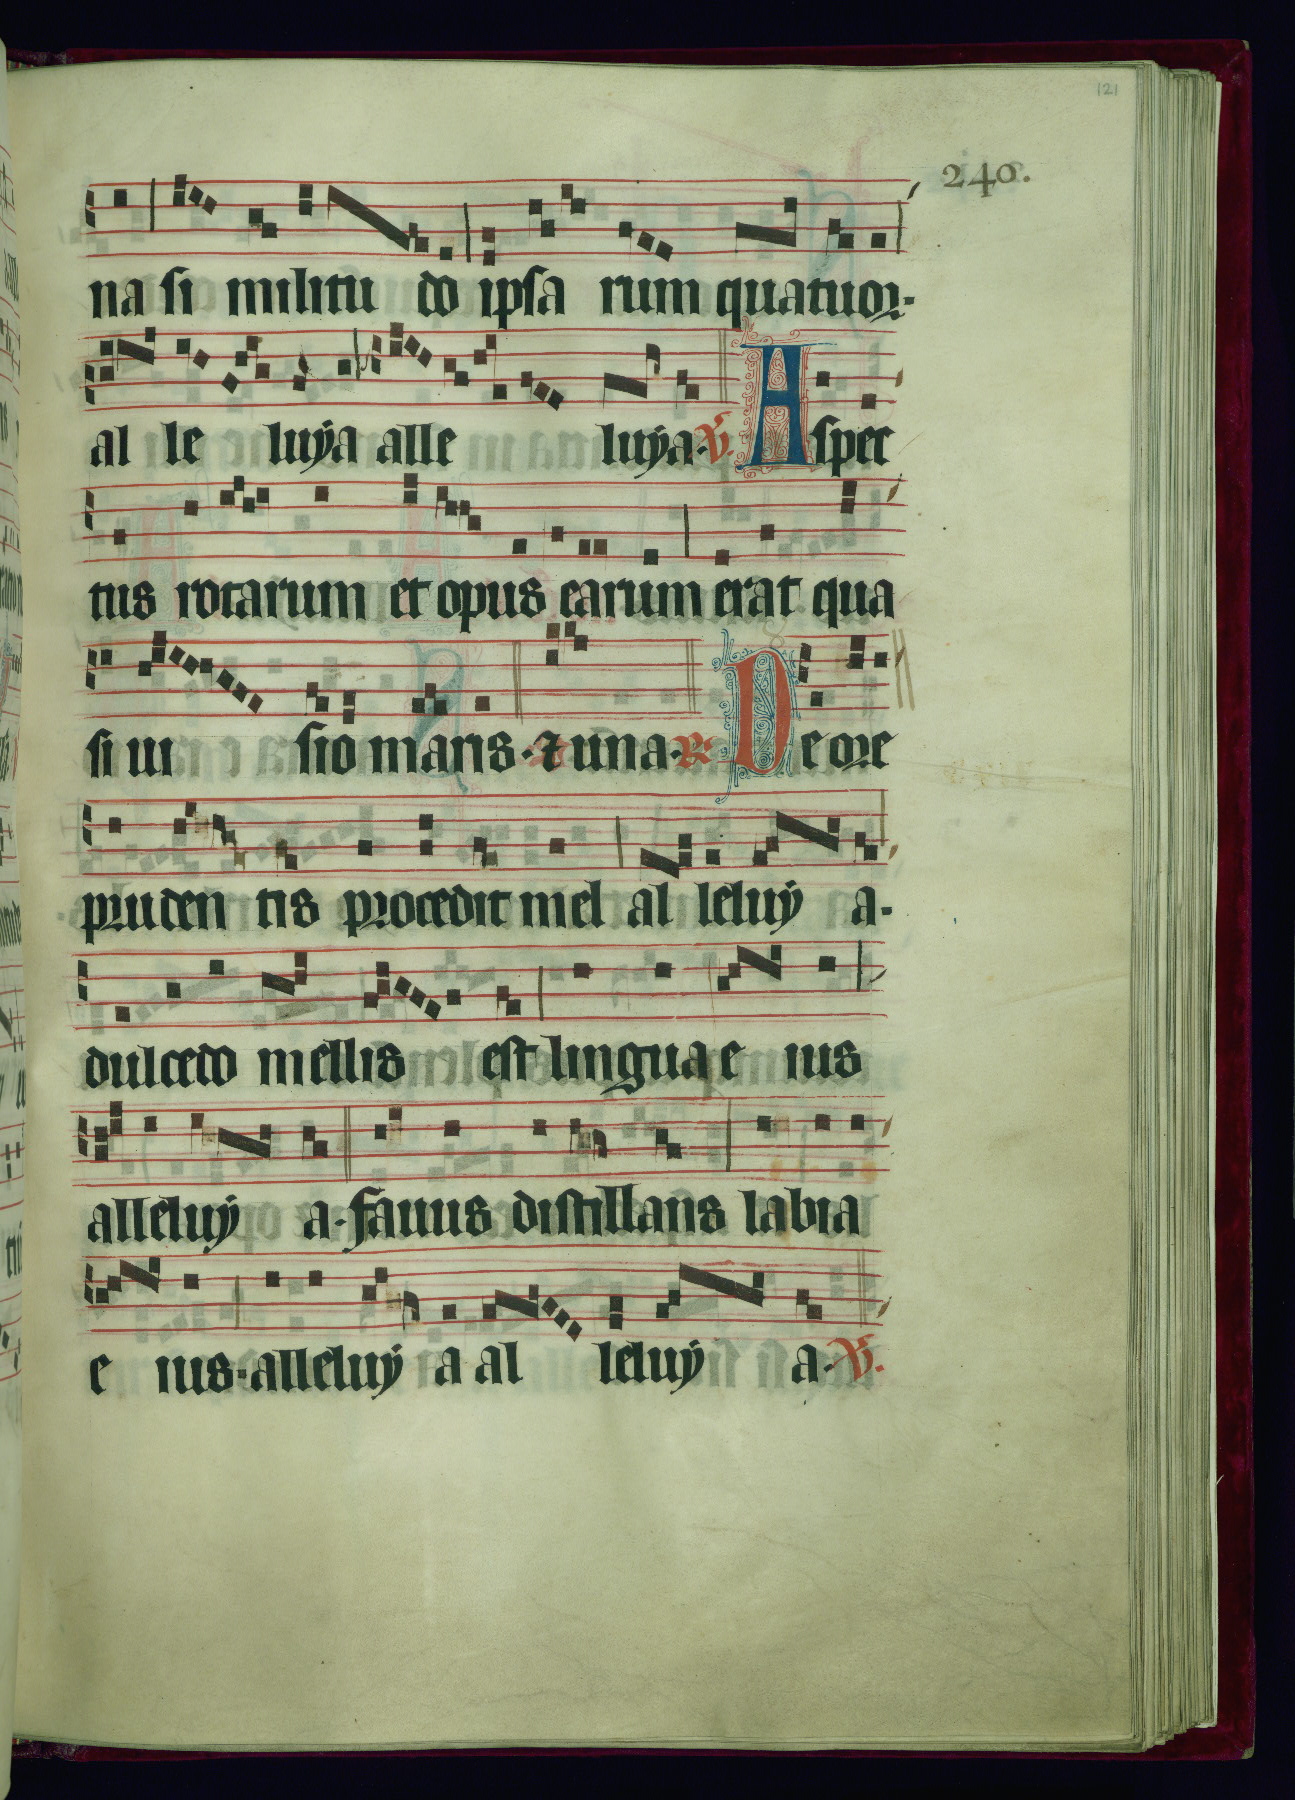 121
240.
na si militu do ipsa rum quatuor.
al le luya alle luya. V. Aspec
tus rotarum et opus earum erat qua
si ui sio maris. ⁊ una. R. De ore
pruden tis procedit mel al leluy a.
dulcedo mellis est lingua e ius
alleluy a. fauus distillans labia
e ius. alleluy a al leluy a. V.